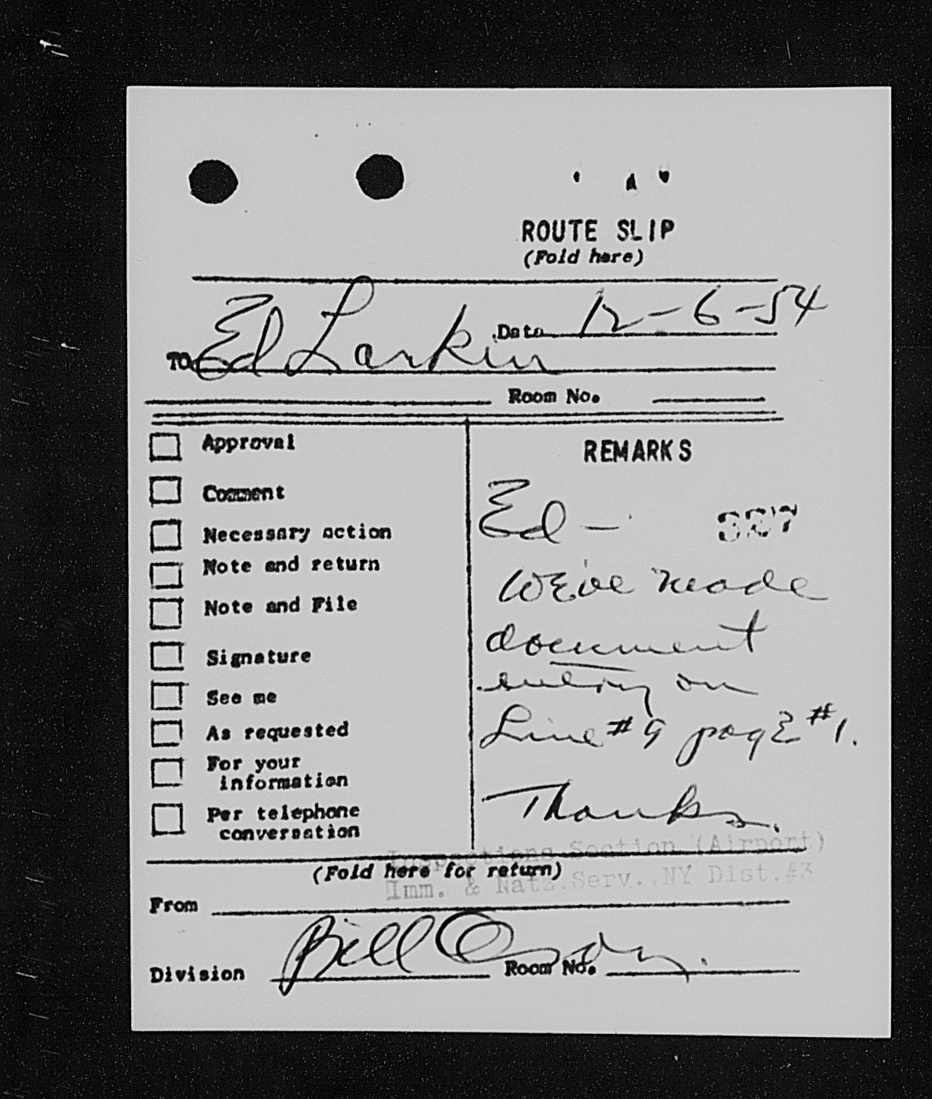 ROUTE SLIP
(Fold here)
Date 12-6-54
TO Ed Larkin
Room No.
Approval
Comment
Necessary action
Note and return
Note and File
Signature
See me
As requested
For your
information
Per telephone
conversation
REMARKS
Ed —
We've made
document
entry on
Line #9 page #1.
Thanks.
Inspections Section (Airport)
(Fold here for return)
Imm. & Natz. Serv. NY Dist. #3
From
Bill
Division
Room No.